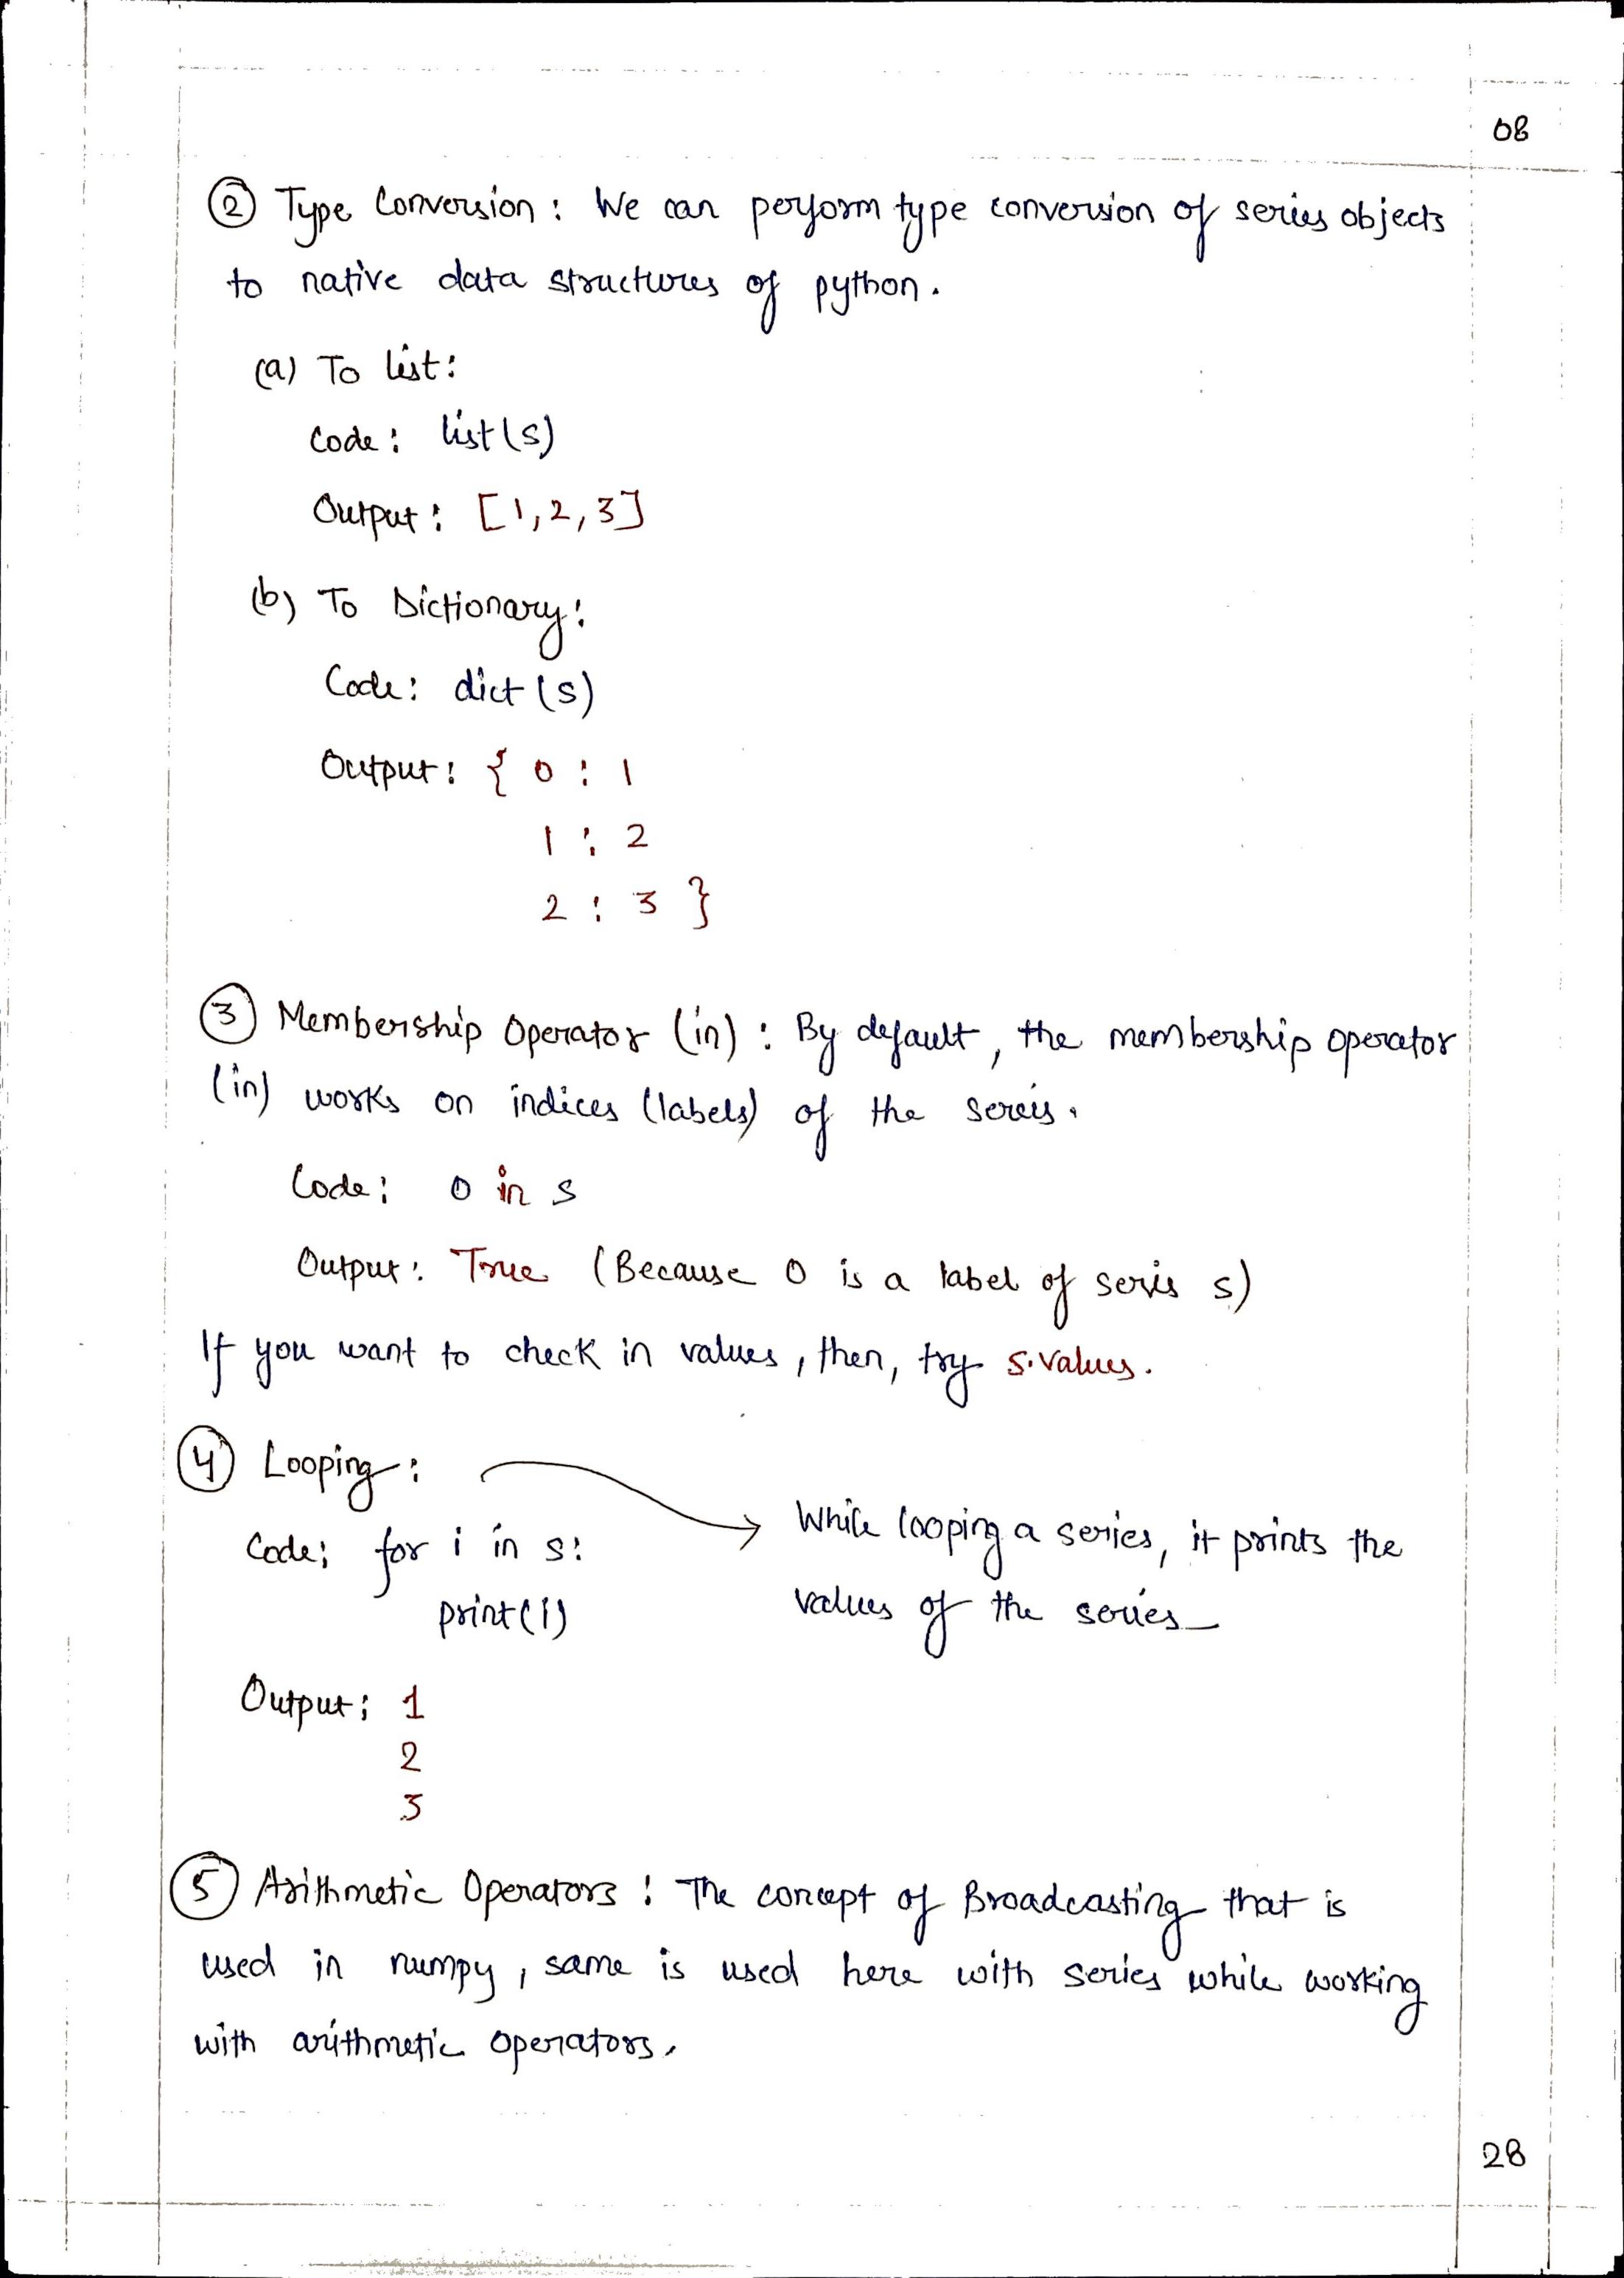 08
② Type Conversion : We can perform type conversion of series objects
to native data structures of python.
(a) To list :
Code : list(s)
Output : [1,2,3]
(b) To Dictionary :
Code : dict(s)
Output : { 0 : 1
1 : 2
2 : 3 }
③ Membership Operator (in) : By default, the membership operator
(in) works on indices (labels) of the sereis.
Code : 0 in s
Output : True (Because 0 is a label of seris s)
If you want to check in values, then, try s.values.
④ Looping :
While looping a series, it prints the
values of the series
Code : for i in s:
print(i)
Output : 1
2
3
⑤ Arithmetic Operators : The concept of Broadcasting that is
used in numpy, same is used here with series while working
with arithmetic operators.
28